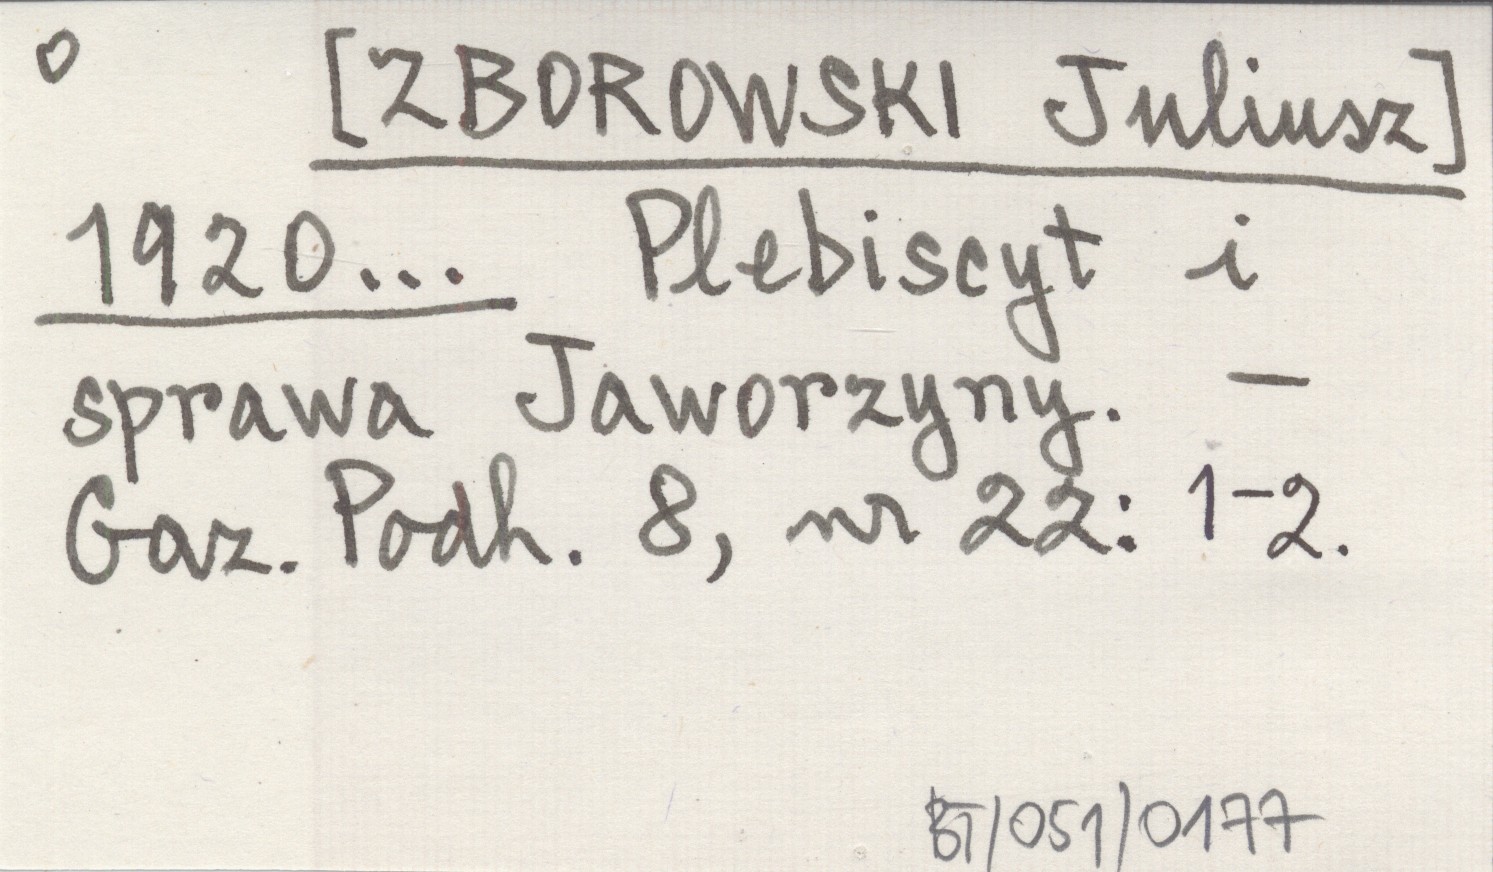 O [ZBOROWSKI Juliusz]
1920... Plebiscyt i
sprawa Jaworzyny. -
Gaz. Podh. 8, nr 22: 1-2.
BT/051/0177